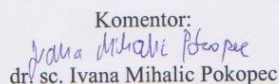 Komentor:
Ivana Mihalić Pokopec
dr. sc. Ivana Mihalic Pokopec